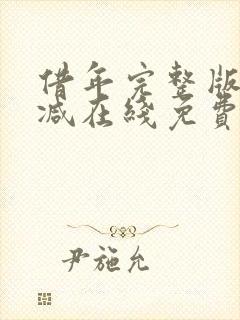 借年完整版
减在线免費
尹施允